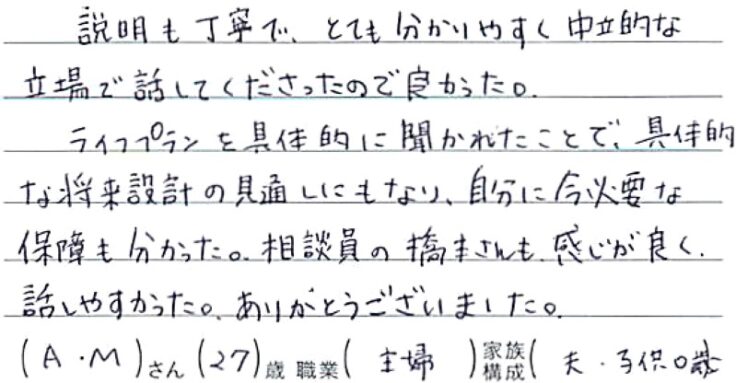 説明も丁寧で、とても分かりやすく中立的な
立場で話してくださったので良かった。
ライフプランを具体的に聞かれたことで、具体的
な将来設計の見通しにもなり、自分に今必要な
保障も分かった。相談員の橋本さんも、感じが良く、
話しやすかった。ありがとうございました。
(A・M)さん(27)歳 職業(主婦)家族構成(夫・子供0歳